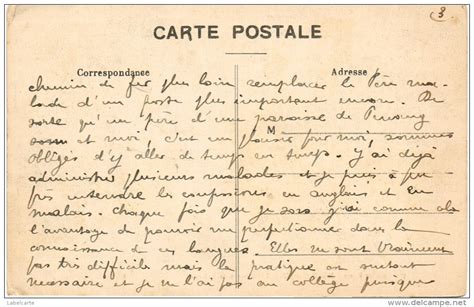 3
CARTE POSTALE
Correspondance
Adresse
M
chemin de fer plus loin remplacer le Père ma-
lade d'un poste plus important encore. De
sorte qu'un père d'une paroisse de Penang
et moi, c'est un plaisir pour moi, sommes
obligés d'y aller de temps en temps. J'ai déjà
administré plusieurs malades et je puis à peu
près entendre les confessions en anglais et en
malais. Chaque fois que je sors j'ai comme cela
l'avantage de pouvoir me perfectionner dans la
connaissance de ces langues. Elles ne sont vraiment
pas très difficiles mais la pratique est surtout
necessaire et je ne l'ai pas au collège puisque
© Labelcarte
delcampe.net